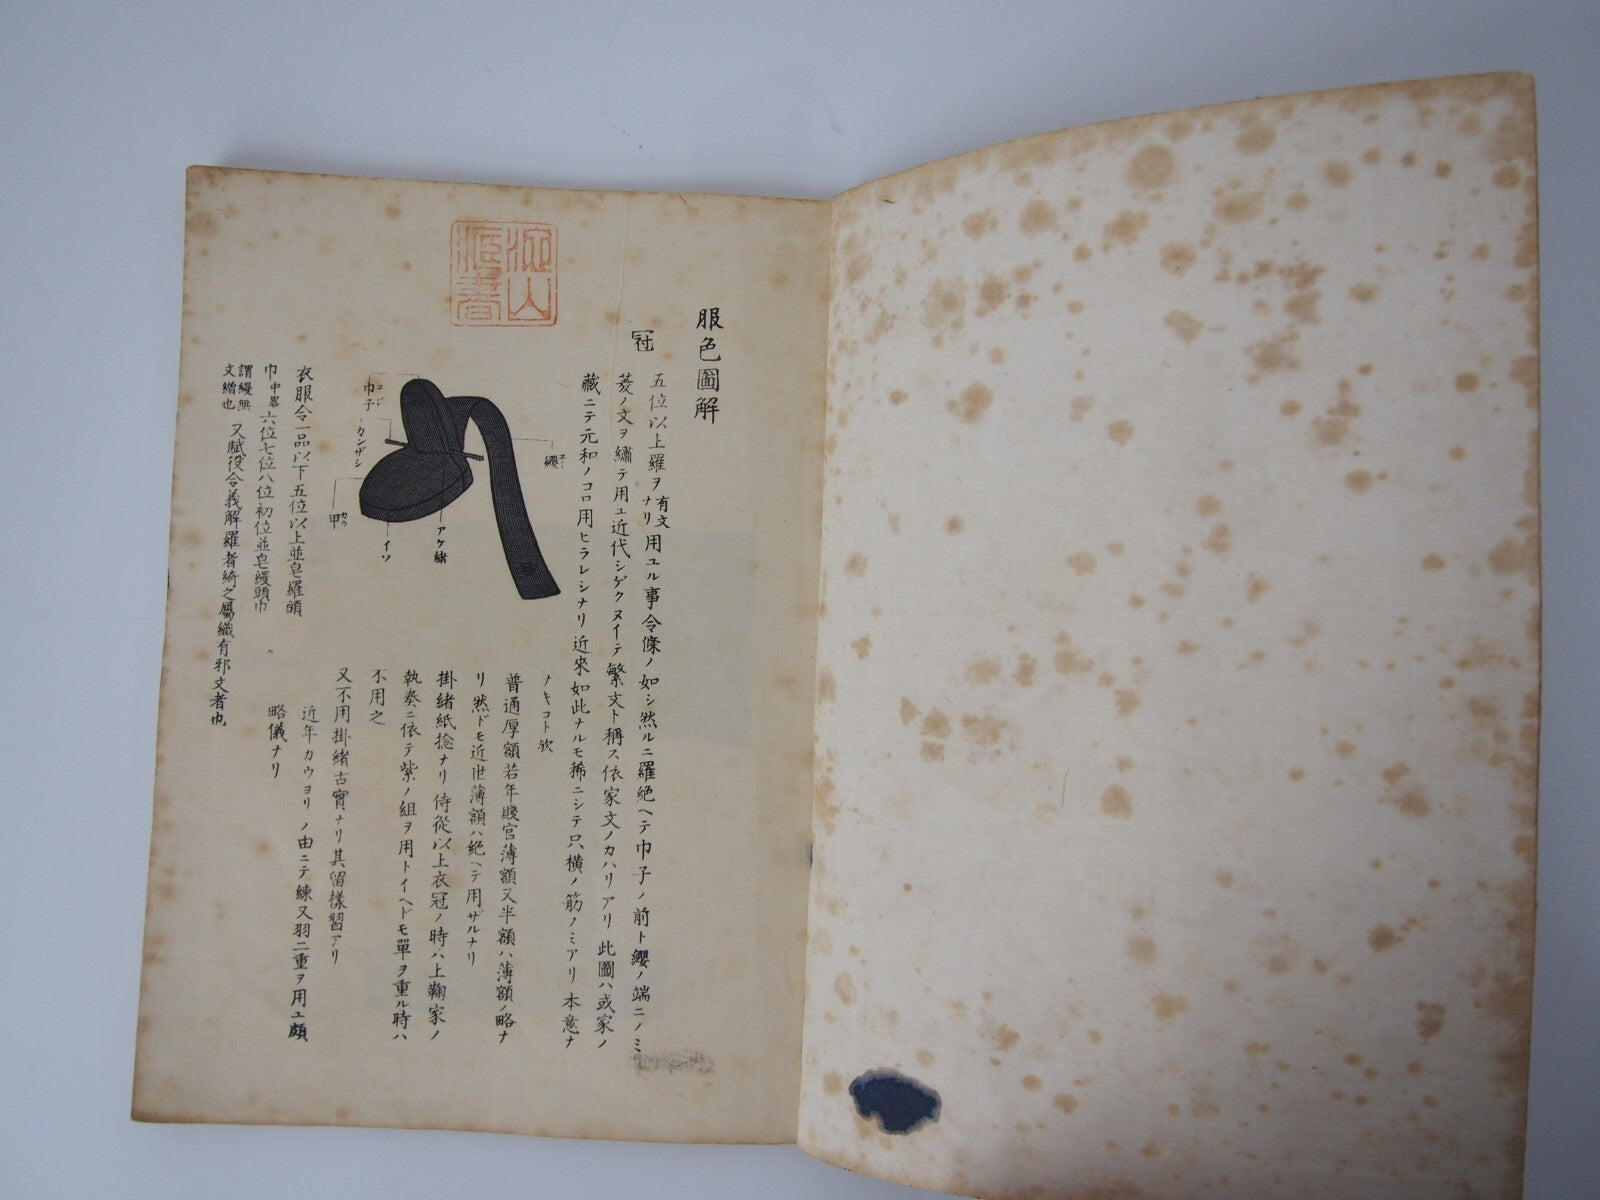 服色圖解
冠
五位以上羅ヲ有文ナリ用ユル事令條ノ如シ然ルニ羅絶ヘテ巾子ノ前ト纓ノ端ニノミ
菱ノ文ヲ繡テ用ユ近代シゲクヌイテ繁文ト稱ス依家文ノカハリアリ此圖ハ或家ノ
藏ニテ元和ノコロ用ヒラレシナリ近來如此ナルモ稀ニシテ只横ノ筋ノミアリ本意ナ
ナキコト欤
普通厚額若年賤官薄額又半額ハ薄額ノ略ナ
リ然ドモ近世薄額ハ絶ヘテ用ザルナリ
掛緒紙捻ナリ侍從以上衣冠ノ時ハ上鞠家ノ
執奏ニ依テ紫ノ組ヲ用トイヘドモ單ヲ重ル時ハ
不用之
又不用掛緒古實ナリ其留樣習アリ
近年カウヨリノ由ニテ練又羽二重ヲ用ユ頗
略儀ナリ
纓
コジ
巾子
カンザシ
アケ緒
イソ
カウ
甲
衣服令一品以下五位以上並皂羅頭
巾中畧六位七位八位初位並皂縵頭巾
謂縵無
文繒也
又賦役令義解羅者綺之屬織有邪文者也
山
藏書